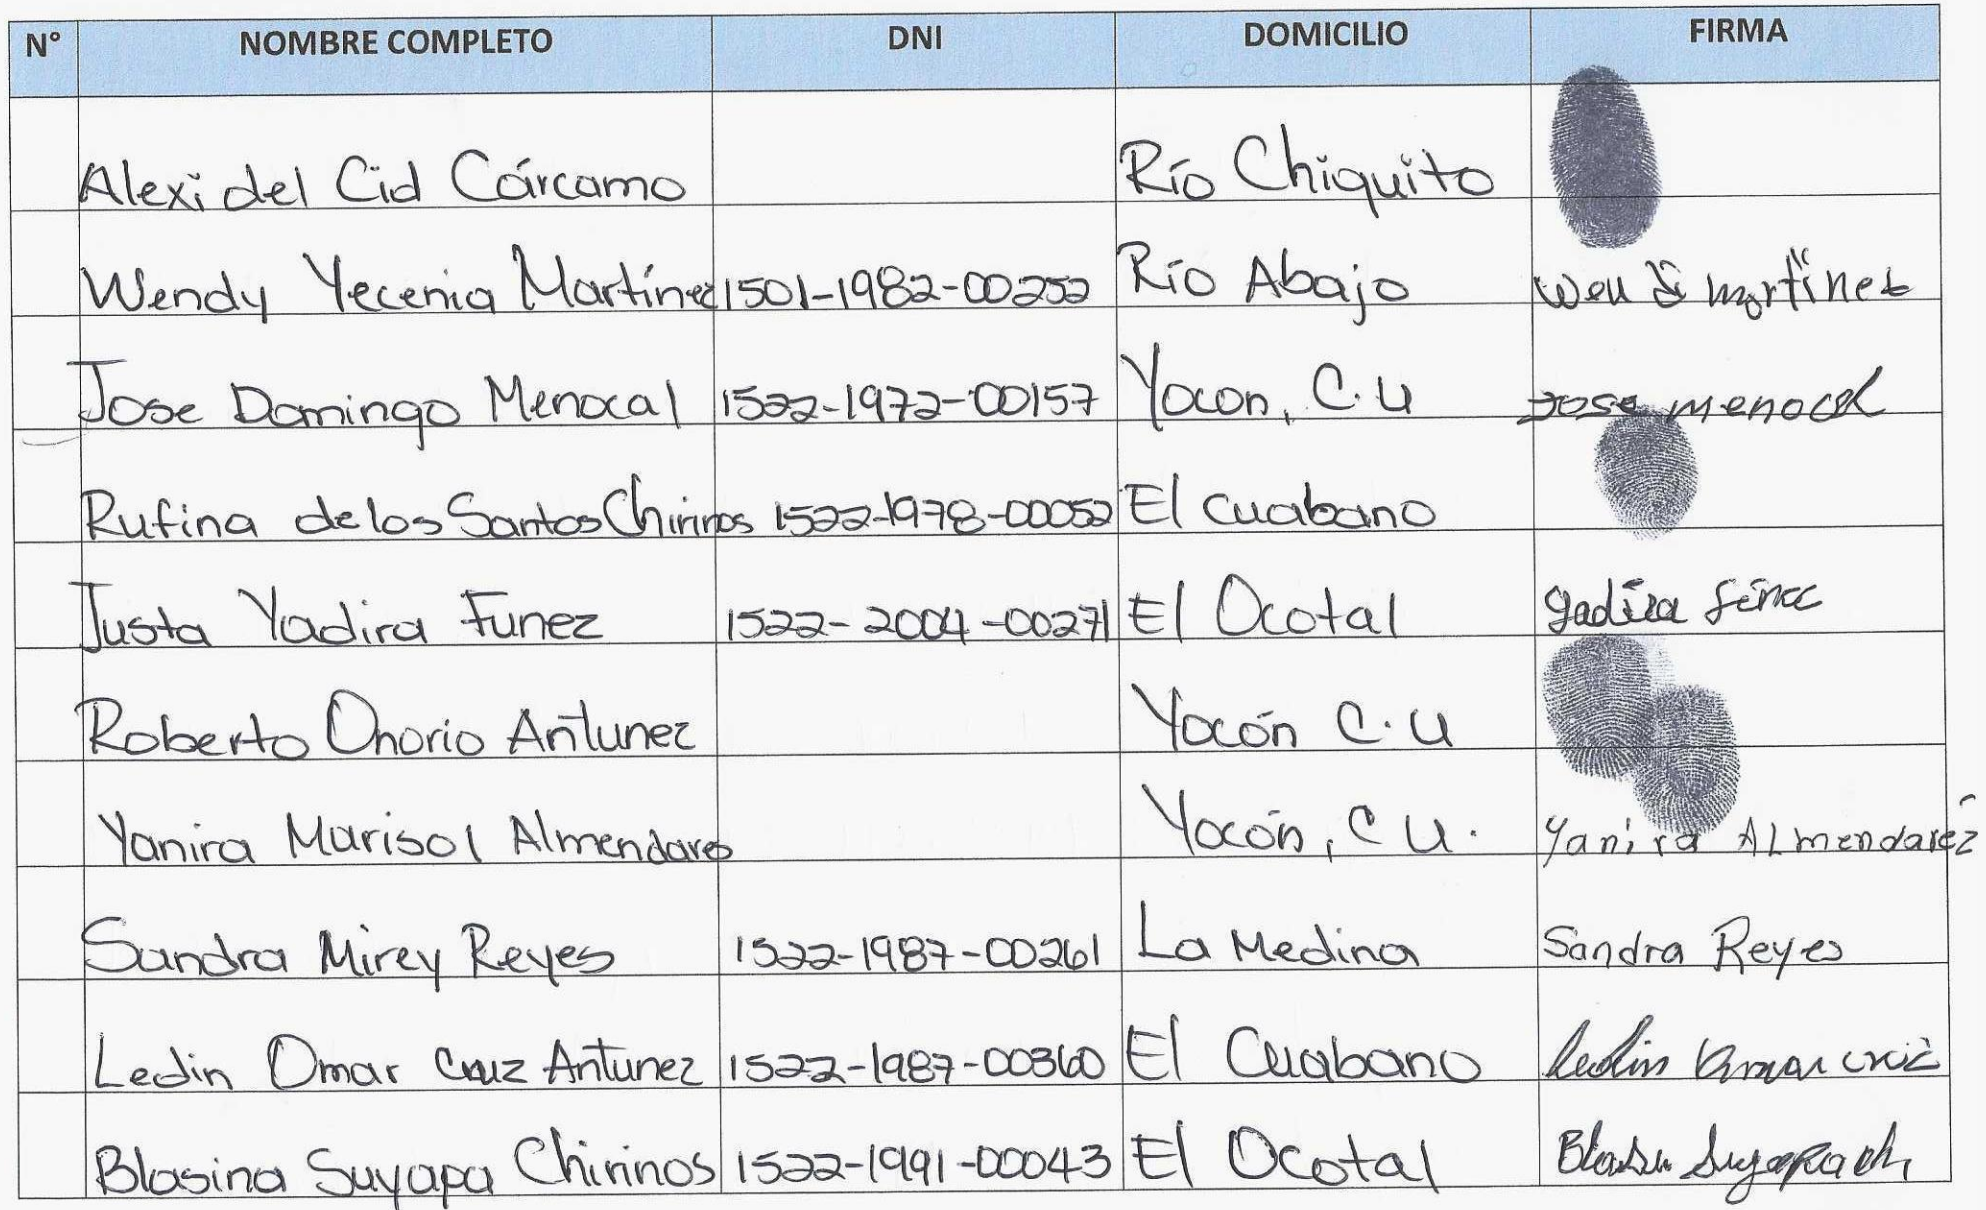 N° NOMBRE COMPLETO DNI DOMICILIO FIRMA
Alexi del Cid Cárcamo Río Chiquito
Wendy Yecenia Martínez 1501-1982-00252 Río Abajo Wendi martinez
Jose Domingo Menocal 1522-1972-00157 Yocon, C.U Jose menocal
Rufina de los Santos Chirinos 1522-1978-00052 El Cuabano
Justa Yadira Funez 1522-2004-00271 El Ocotal
Roberto Onorio Antunez Yocón C.U
Yanira Marisol Almendares Yocón, C U. Yanira ALmendarez
Sandra Mirey Reyes 1522-1987-00261 La Medina Sandra Reyes
Ledin Omar Cruz Antunez 1522-1987-00360 El Cuabano Ledin Omar cruz
Blasina Suyapa Chirinos 1522-1991-00043 El Ocotal